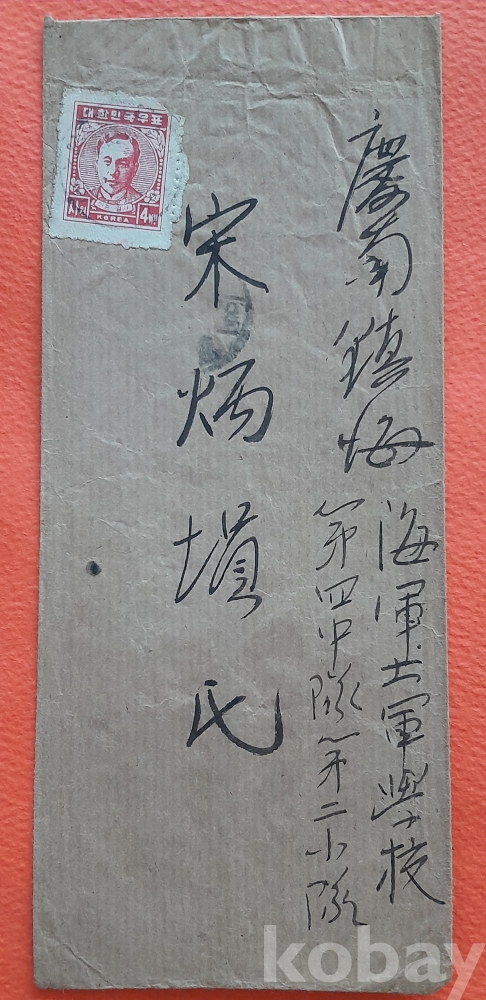 慶南鎮海
海軍士軍學校
第四中隊第二小隊
宋炳塤氏
대한민국우표
KOREA
4원
kobay